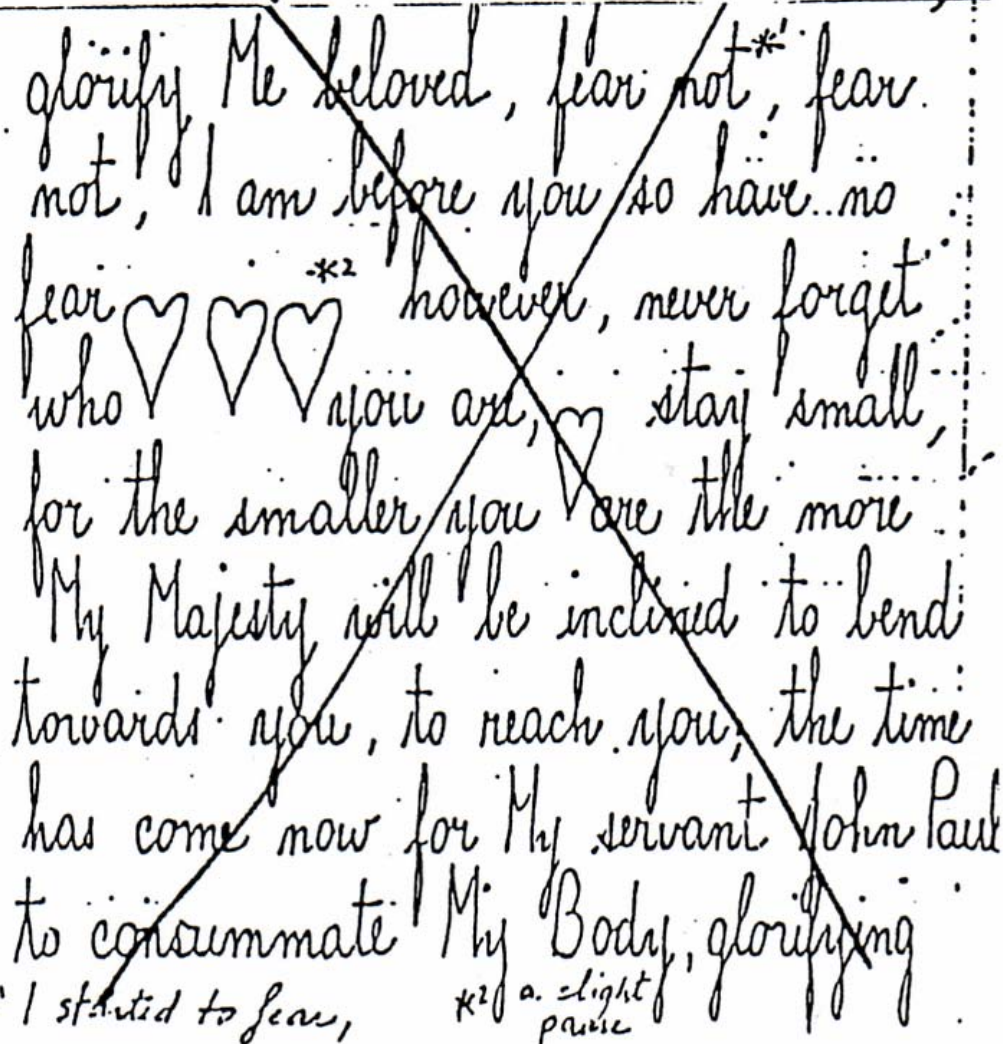 glorify Me beloved, fear not*¹, fear
not, I am before you so have no
fear ♡♡♡*² however, never forget
who you are, ♡ stay small,
for the smaller you are the more
My Majesty will be inclined to bend
towards you, to reach you, the time
has come now for My servant John Paul
to consummate My Body, glorifying
*¹ I started to fear,
*² a slight
pause